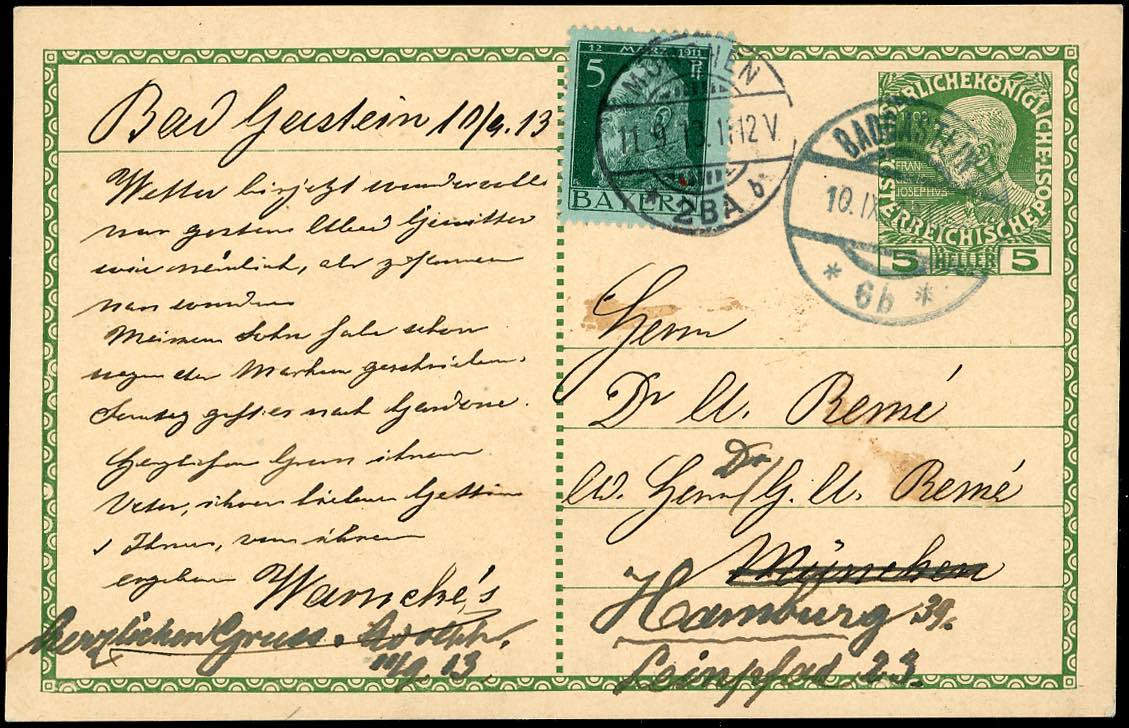 Bad Gastein 10/9.13
Wetter bis jetzt wundervoll
nur gestern Abend Gewitter
wie neulich, als zusammen
nun wurden
Meinem Sohn habe schon
wegen der Marken geschrieben.
Sonntag geht es nach Gardone.
Herzlichen Gruss Ihrem
Vater, Ihrer lieben Gattin
u Ihnen, von Ihrem
ergebenen Warncke's
Herzlichen Gruss. Adolph.
11/9.13
12 MÄRZ 1911
5 Pf
BAYERN
MÜNCHEN
11. 9. 13. 11-12 V.
* 2BA b
KAISERLICHEKÖNIGLICHE
ÖSTERREICHISCHE POST
FRANC
IOSEPHVS
5 HELLER 5
BADGASTEIN
10. IX
* 6b *
Herrn
Dr A. Remé
W. Herrn Dr/G. A. Remé
München
Hamburg 39.
Leinpfad 23.